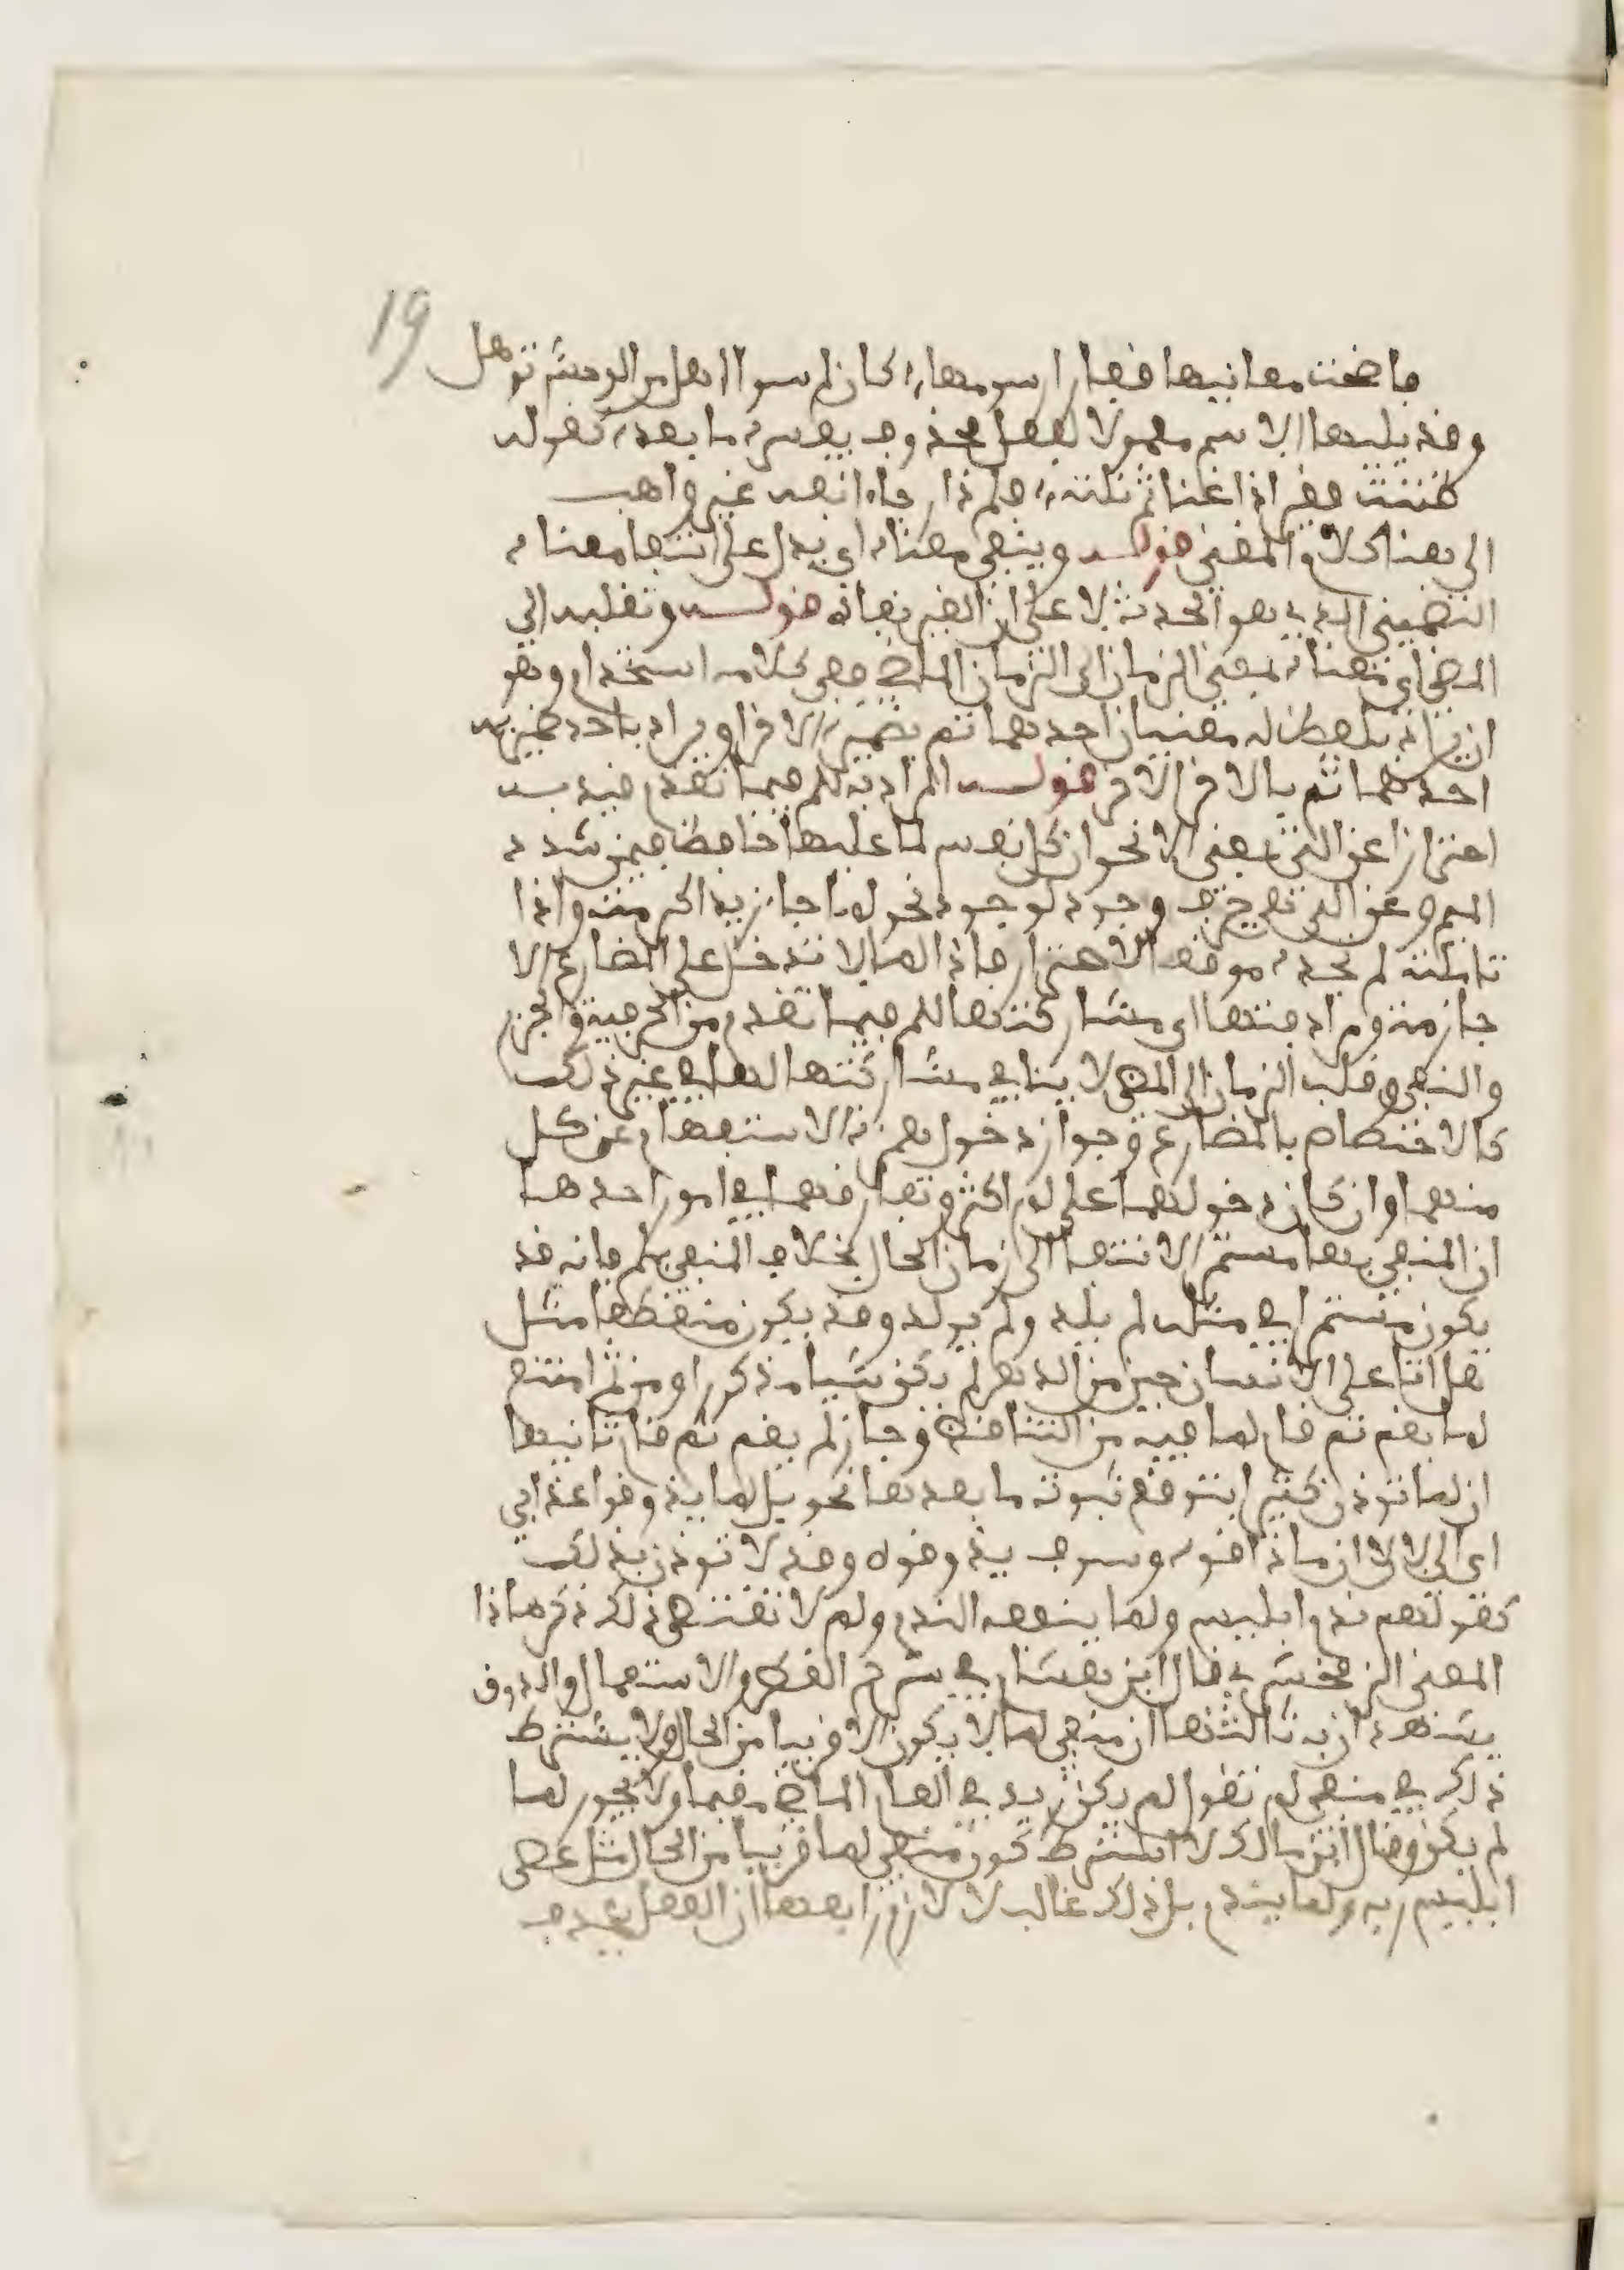 19
فاضحت معانيها قفارا رسومها، كان لم سوا اهل من الوحش توهل
وقد يليها الاسم معمولا لفعل محذوف يفسره ما بعده كقوله
ظننت فقيرا ذا غنا ثم نلته، فلم ذا رجاء القه غير واهب
الى هنا كلام المغنى قوله وينفى معناه اى يدل على انتفا معناه
التضمينى الذى هو الحدث لا على ان الغير نفاه قوله وتقلبه الى
المضى اى معناه بمعنى الزمان الى الزمان الماضى ففى كلامه استخدام وهو
ان يراد بلفظ له معنيان احدهما ثم بضميره الاخر او يراد باحد ضميريه
احدهما ثم بالاخر الاخر قوله المرادفة للم فيما تقدم قيد به
احترازا عن التى بمعنى الا نحو ان كل نفس لما عليها حافظ فيمن شدد
الميم وعن التى هى حرف وجود لوجود نحو لما جا زيد اكرمته واذا
تاملته لم تجده موقع الاحتراز فان لما لا تدخل على المضارع الا
جازمة ومرادفتها اى مشاركتها للم فيما تقدم من الحرفية والجزم
والنفى وقلب الزمان الى المضى لا ينافى مشاركتها لها فى غير ذلك
كالاختصاص بالمضارع وجواز دخول همزة الاستفهام على كل
منهما وان كان دخولها على لم اكثر وتفارقها فى امور احدها
ان المنفى بها مستمر الانتفا الى زمان الحال بخلاف المنفى بلم فانه قد
يكون مستمرا فى مثل لم يلد ولم يولد وقد يكون منقطعا مثل
هل اتى على الانسان حين من الدهر لم يكن شيا مذكورا ومن ثم امتنع
لما يقم ثم قام لما فيه من التناقض وجاز لم يقم ثم قام ثانيها
ان لما توذن كثيرا بتوقع ثبوت ما بعدها نحو بل لما يذوقوا عذابى
اى الى الان ما ذاقوه وسوف يذوقوه وقد لا توذن بذلك
كقولهم ندم ابليس ولما ينفعه الندم ولم لا تقتضى ذلك ذكر هاذا
المعنى الزمخشرى قال ابن هشام فى شرح القطر والاستعمال والذوق
يشهدان به ثالثها ان منفى لما لا يكون الا قريبا من الحال ولا يشترط
ذلك فى منفى لم تقول لم يكن زيد فى العام الماضى مقيما ولا يجوز لما
لم يكن وقال ابن مالك لا يشترط كون منفى لما قريبا من الحال مثل عصى
ابليس ربه ولما يندم بل ذلك غالب لا لازم رابعها ان الفعل يحذف